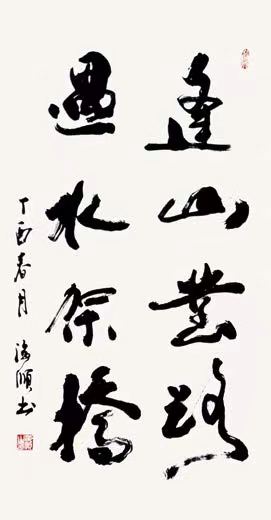 逢山凿路
遇水架橋
丁酉春月 海順书